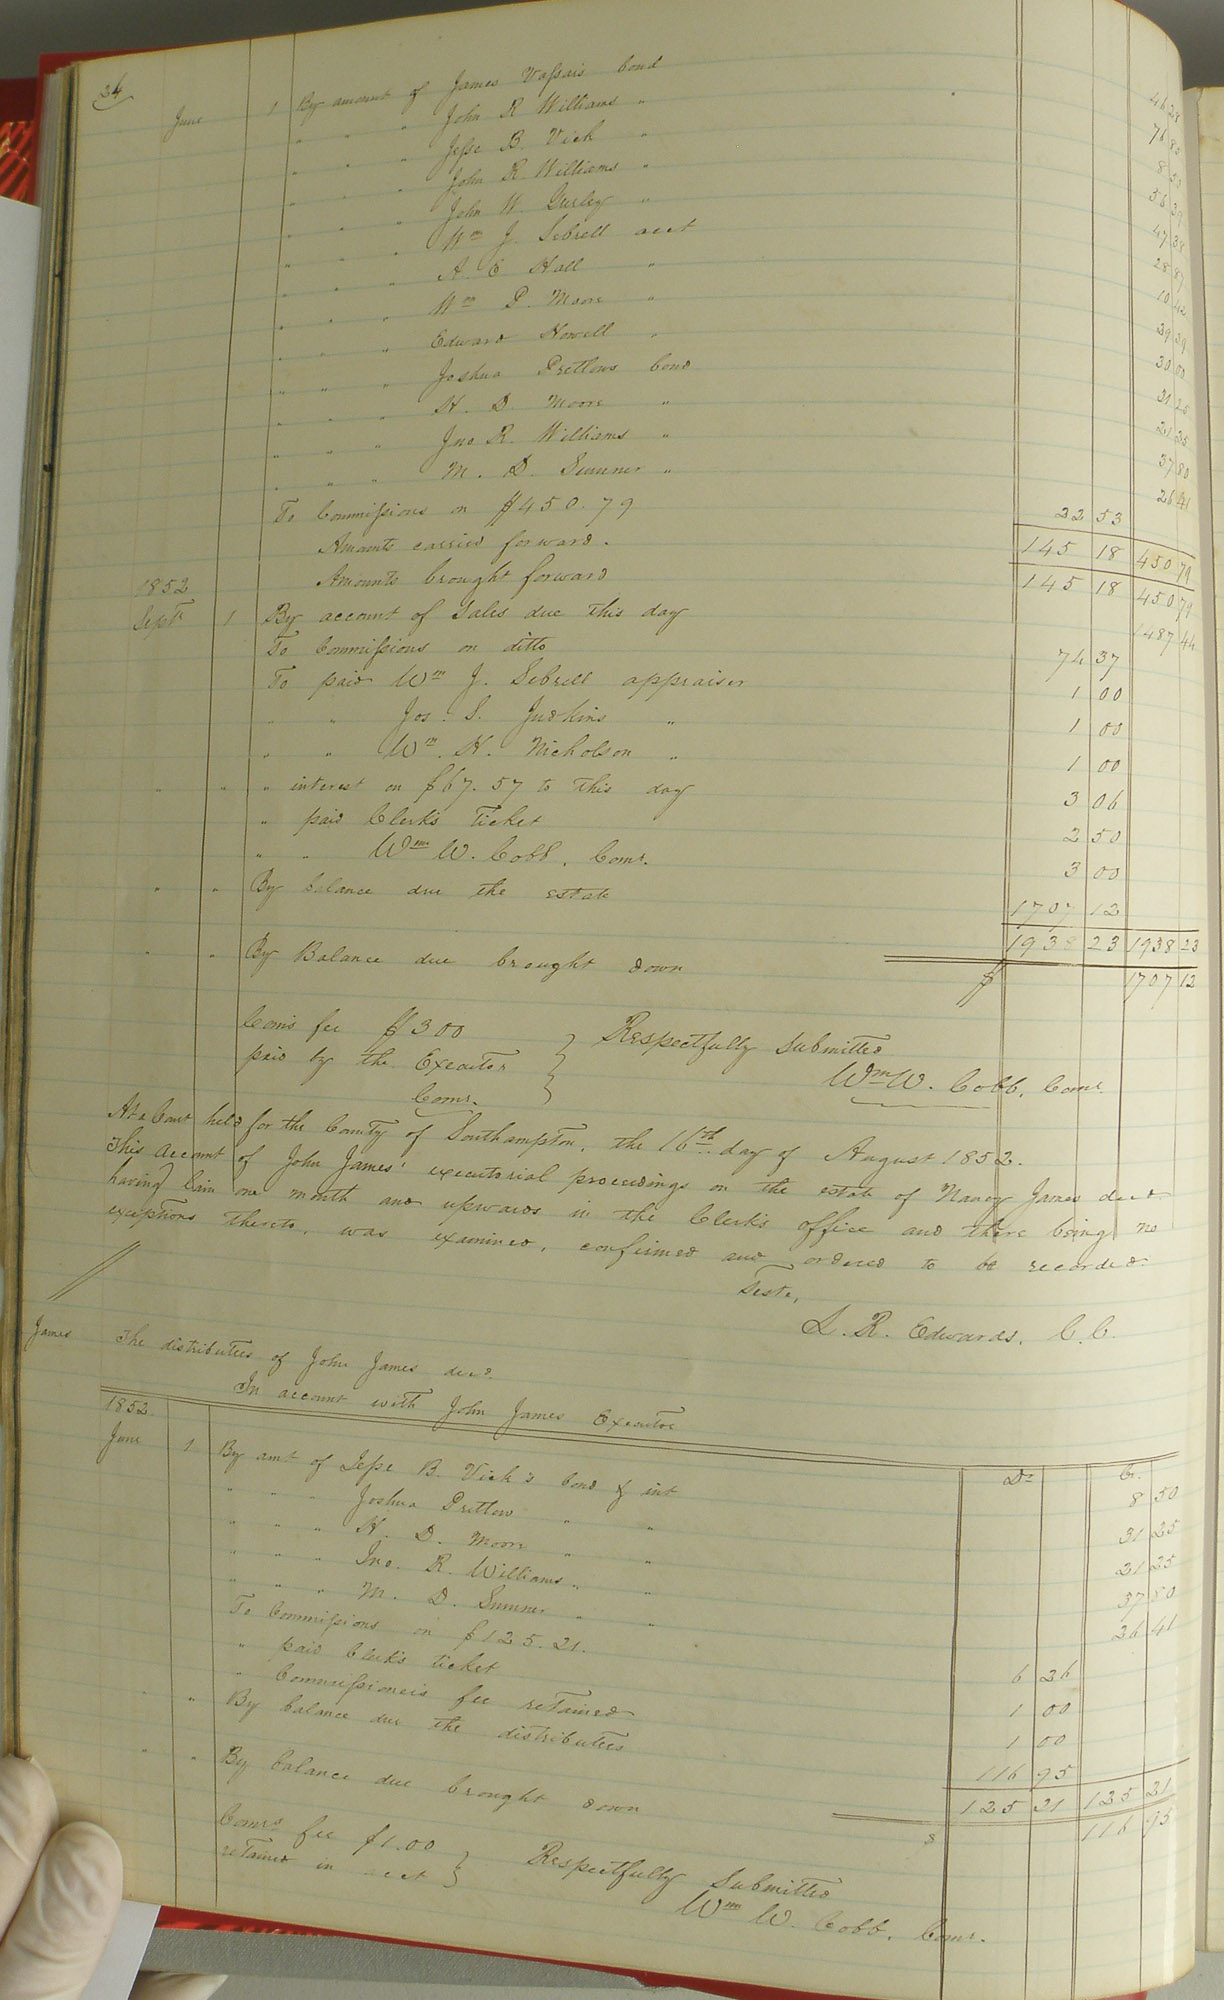 34
June 1 By amount of James Vassais bond 46 28
" " " John R Williams " 76 80
" " " Jesse B. Vick " 8 50
" " " John R. Williams " 56 39
" " " John W. Gurley " 47 38
" " " Wm J. Sebrell acct 28 87
" " " A E Hall " 10 42
" " " Wm P. Moore " 39 39
" " " Edward Howell " 30 00
" " " Joshua Pretlows bond 31 25
" " " H. D. Moore " 21 25
" " " Jno R. Williams " 37 80
" " " M. D. Sumner " 26 41
To Commissions on $450.79 22 53
Amounts carried forward. 145 18 450 79
Amounts brought forward 145 18 450 79
1852
Sept 1 By account of Sales due this day 1487 44
To Commissions on ditto 74 37
To paid Wm J. Sebrell appraiser 1 00
" " Jos. S. Judkins " 1 00
" " Wm. H. Nicholson " 1 00
" " " interest on $67.57 to this day 3 06
" paid Clerk's Ticket 2 50
" " Wm W. Cobb, Comr. 3 00
" " By balance due the estate 1707 12
1938 23 1938 23
" " By Balance due brought down $ 1707 12
Com's fee $3 00
paid by the Executor
Comr.
Respectfully Submitted
Wm W. Cobb, Comr.
At a Court held for the County of Southampton, the 16th day of August 1852.
This account of John James' executorial proceedings on the estate of Nancy James decd
having lain one month and upwards in the Clerk's office and there being no
exceptions thereto, was examined, confirmed and ordered to be recorded.
Teste,
L. R. Edwards, C. C.
James The distributees of John James decd.
In account with John James Executor
1852 Dr Cr.
June 1 By amt of Jesse B. Vick's bond & int 8 50
" " " Joshua Pretlow " " 31 25
" " " H. D. Moore " " 21 25
" " " Jno. R. Williams " " 37 80
" " " M. D. Sumner " " 26 41
To Commissions on $125.21. 6 26
" paid Clerk's ticket 1 00
" Commissioners fee retained 1 00
" " By balance due the distributees 116 95
125 21 125 21
" " By balance due brought down $ 116 95
Comrs fee $1.00
retained in acct
Respectfully Submitted
Wm W. Cobb, Comr.